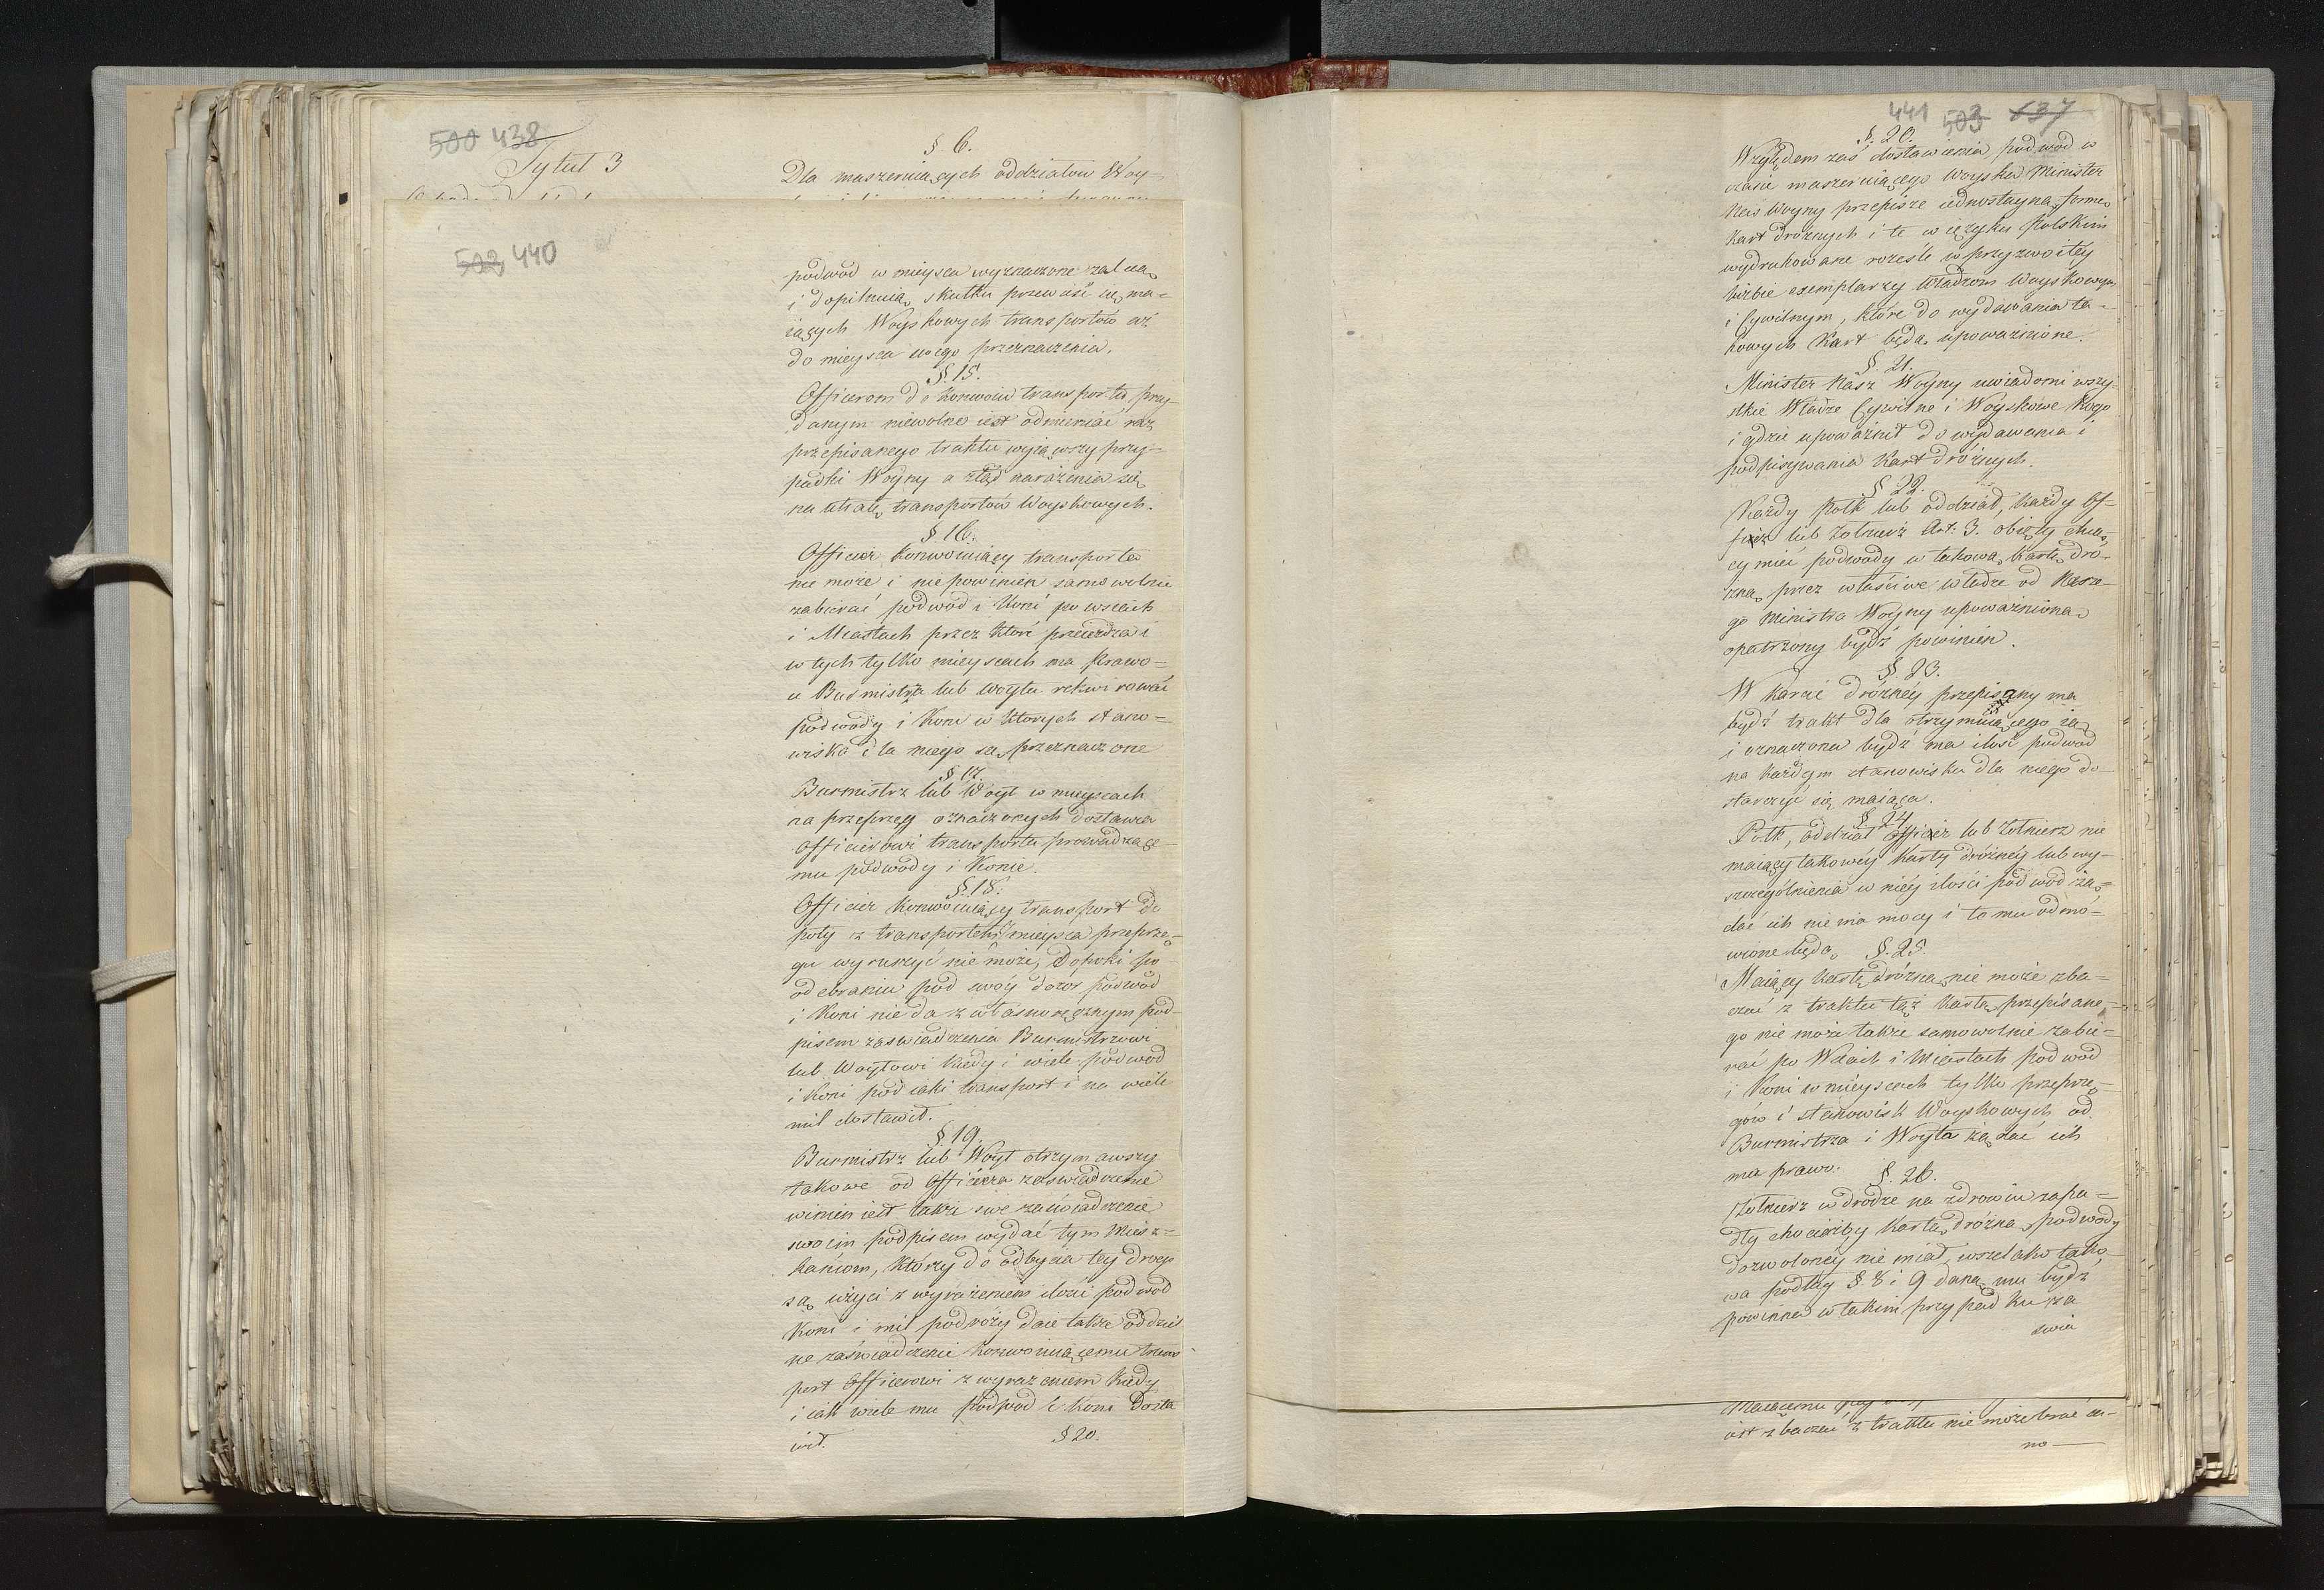 500 438
Tytuł 3
§ 6.
Dla maszeruiących oddziałów Woy=
502 440
podwod w mieysca wyznaczone
i dopilnuią skutku przewieść się ma=
iących Woyskowych transportów aż
do mieysca swego przeznaczenia.
§. 15.
Officerom do konwoiu transportu przy-
danym niewolno iest odmieniać raz
przepisanego traktu wyiąwszy przy-
padki Woyny a ztąd narażenia się
na utratę transportów Woyskowych.
§. 16.
Officer konwoiuiący transporta
nie może i nie powinien samowolnie
zabierać podwod i Koni po wsiach
i Miastach przez które przeieżdza i
w tych tylko mieyscach ma Prawo=
u Burmistrza lub woyta rekwirować
podwody i Konie w których stano=
wiska dla niego są przeznaczone
§ 17.
Burmistrz lub Woyt w mieyscach
na przeprzęg oznaczonych dostawia
Officierowi transportu prowadzące-
mu podwody i Konie.
§. 18.
Officer Konwoiuiący transport do
poty z transportem z mieysca przeprzę-
gu wyruszyć nie może, Dopoki po
odebraniu pod swóy dozor podwod
i Koni nie da z własnoręcznym pod-
pisem zaświadczenia Burmistrzowi
lub Woytowi kiedy i wiele podwod
i Koni pod iaki transport i na wiele
mil dostawił.
§ 19.
Burmistrz lub Woyt otrzymawszy
takowe od Officera zaświadczenie
winien iest także swe zaświadczenie
swoim podpisem wydać tym Miesz=
kańcom, którzy do odbycia tey drogi
są użyci z wyrażeniem ilości podwod
Koni i mil podróży daie także oddziel
ne zaświadczenie konwoiuiącemu trans
port Officerowi z wyrażeniem Kiedy
i iak wiele mu Podwod i Koni Dosta
wił.
§ 20.
441 503 637
§. 20.
Względem zaś dostawienia podwod w
czasie maszeruiącego Woyska Minister
Nasz Woyny przepisze iednostayną formę
Kart dróżnych i te w ięzyku Polskim
wydrukowane roześle w przyzwoitey
liczbie exemplarzy Władzom Woyskowym
i Cywilnym, które do wydawania ta-
kowych Kart będą upoważnione.
§. 21.
Minister Nasz Woyny uwiadomi wszy-
stkie Władze Cywilne i Woyskowe Kogo
i gdzie upoważnił do wydawania i
podpisywania Kart dróżnych.
§ 22.
Każdy Połk lub oddział, każdy Of-
ficer lub Zołnierz Art. 3. obięty chcą-
cy mieć podwody w takową Kartę dró-
żną przez właściwe władze od Nasze-
go Ministra Woyny upoważnioną
opatrzony bydź powinien.
§ 23.
W karcie dróżnéy przepisany ma
bydź trakt dla otrzymuiącego ią
i oznaczona bydź ma ilość podwod
na każdym stanowisku dla niego do-
starczyć się maiąca.
§ 24
Połk, oddział officier lub Zołnierz nie
maiący takowéy Karty dróżnéy lub wy-
szczególnienia w niéy ilości podwod żą=
dać ich nie ma mocy i to mu odmó=
wione będą. §. 25.
Maiący Kartę dróżną nie może zba=
czać z traktu tąż Kartą przepisane-
go nie może także samowolnie zabie-
rać po Wsiach i Miastach podwod
i Koni w mieyscach tylko przeprzę-
gów i stanowisk Woyskowych od
Burmistrza i Woyta żądać ich
ma prawo. §. 26.
Zołnierz w drodze na zdrowiu zapa=
dły chociażby Kartą dróżną podwody
dozwolonéy nie miał, wszelako tako-
wa podług §. 8 i 9 daną mu bydź
powinna w takim przypadku za
świa
iest zbaczać z traktu nie może brać in-
no —